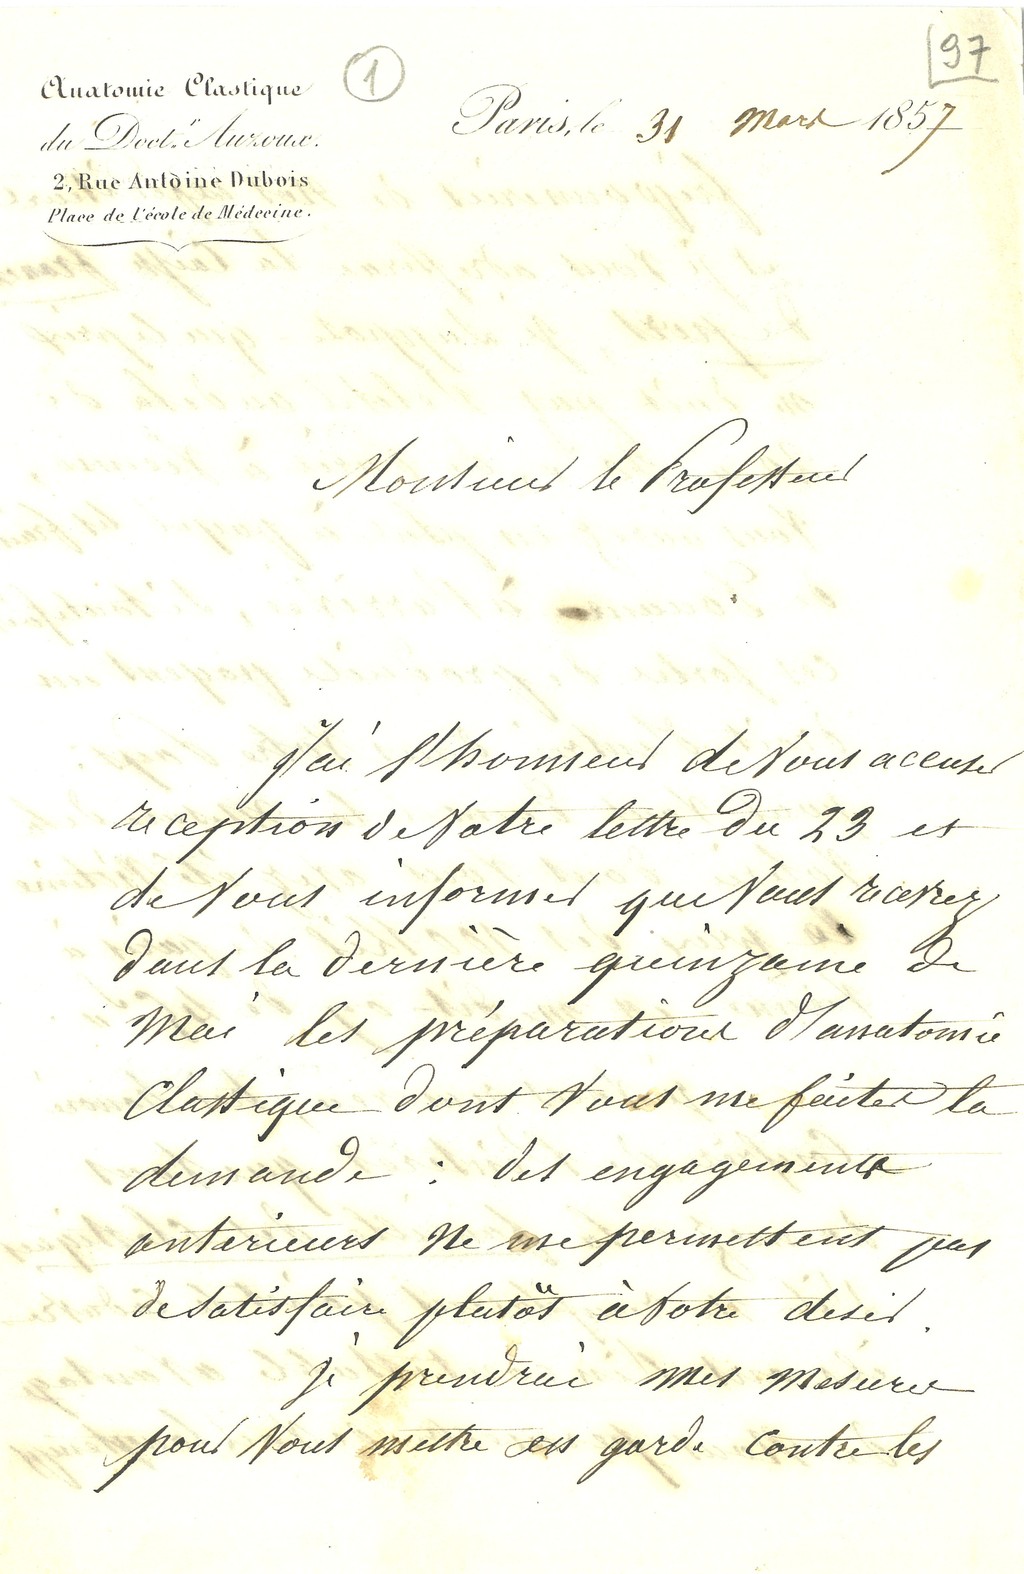 97
1
Anatomie Clastique
du Doct.r Auzoux.
2, Rue Antoine Dubois
Place de l'école de Médecine.
Paris, le 31 Mars 1857
Monsieur le Professeur
J'ai l'honneur de Vous accuser
reception de Votre lettre du 23 et
de Vous informer que Vous recevrez
dans la dernière quinzaine de
Mai les préparations d'anatomie
Clastique dont Vous me faites la
demande : des engagements
anterieurs ne me permettent pas
de satisfaire plutôt à Votre desir.
je prendrai mes mesures
pour Vous mettre en garde contre les